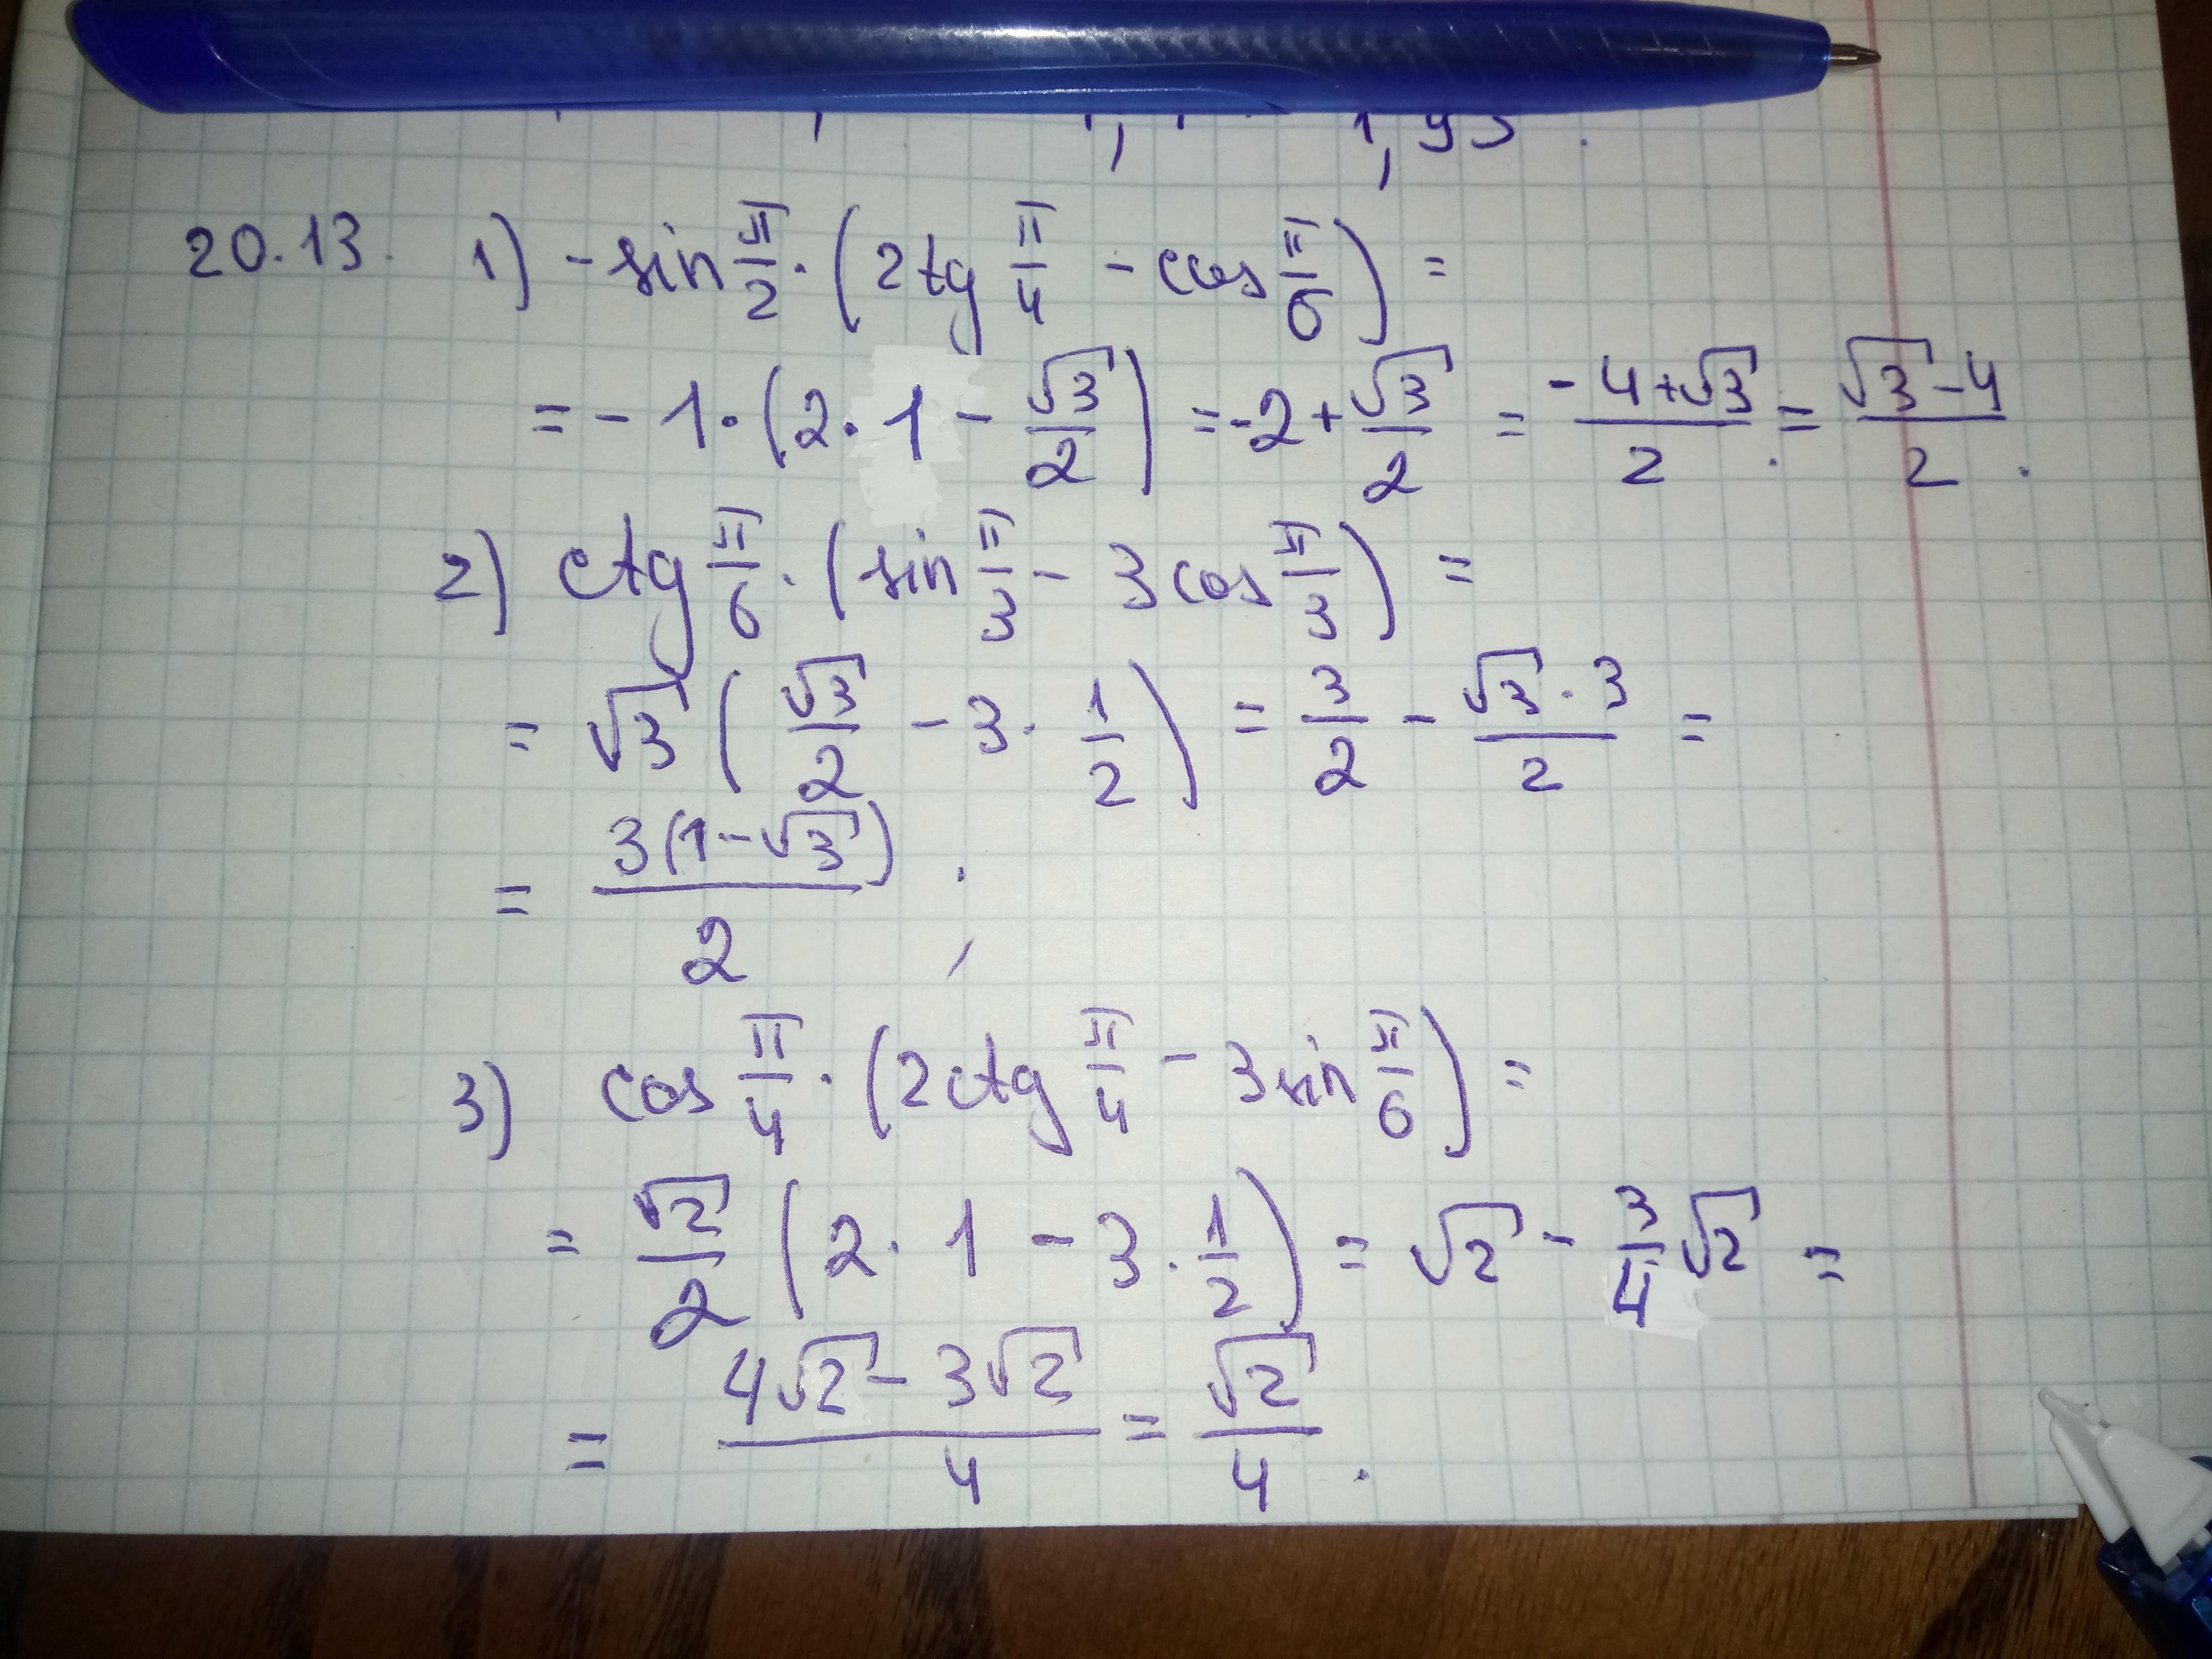 1,95.
20.13. 1) -sin π/2 · (2tg π/4 - cos π/6) =
= -1 · (2 · 1 - √3/2) = -2 + √3/2 = (-4+√3)/2 = (√3-4)/2.
2) ctg π/6 · (sin π/3 - 3cos π/3) =
= √3 (√3/2 - 3 · 1/2) = 3/2 - (√3 · 3)/2 =
= 3(1-√3)/2.
3) cos π/4 · (2ctg π/4 - 3sin π/6) =
= √2/2 (2 · 1 - 3 · 1/2) = √2 - 3/4 √2 =
= (4√2 - 3√2)/4 = √2/4.